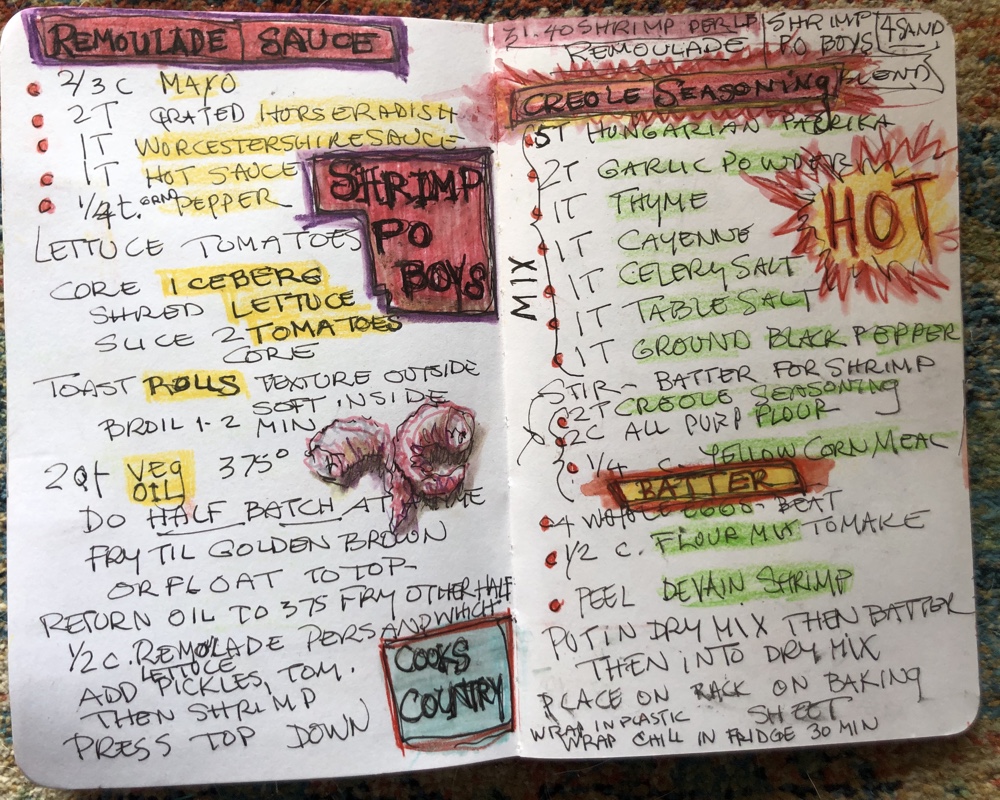 REMOULADE SAUCE
2/3 C MAYO
2T GRATED HORSERADISH
1T WORCESTERSHIRE SAUCE
1T HOT SAUCE
1/4 t. GRN PEPPER
SHRIMP
PO
BOYS
LETTUCE TOMATOES
CORE ICEBERG
SHRED LETTUCE
SLICE 2 TOMATOES
CORE
TOAST ROLLS TEXTURE OUTSIDE
SOFT INSIDE
BROIL 1-2 MIN
2 Qt VEG OIL 375°
DO HALF BATCH AT TIME
FRY TIL GOLDEN BROWN
OR FLOAT TO TOP
RETURN OIL TO 375 FRY OTHER HALF
1/2 C. REMOULADE PER SANDWHICH
LETTUCE
ADD PICKLES, TOM.
THEN SHRIMP
PRESS TOP DOWN
COOKS
COUNTRY
31.40 SHRIMP PER LB
REMOULADE
SHRIMP
PO BOYS
4 SAND
CREOLE SEASONING
BLEND
5T HUNGARIAN PAPRIKA
2T GARLIC POWDER
1T THYME
1T CAYENNE
1T CELERY SALT
1T TABLE SALT
1T GROUND BLACK PEPPER
MIX
HOT
STIR - BATTER FOR SHRIMP
2T CREOLE SEASONING
2C ALL PURP FLOUR
1/4 C. YELLOW CORN MEAL
BATTER
4 WHOLE EGGS - BEAT
1/2 C. FLOUR MIX TO MAKE
PEEL DEVAIN SHRIMP
PUT IN DRY MIX THEN BATTER
THEN INTO DRY MIX
PLACE ON RACK ON BAKING
SHEET
WRAP IN PLASTIC
WRAP CHILL IN FRIDGE 30 MIN